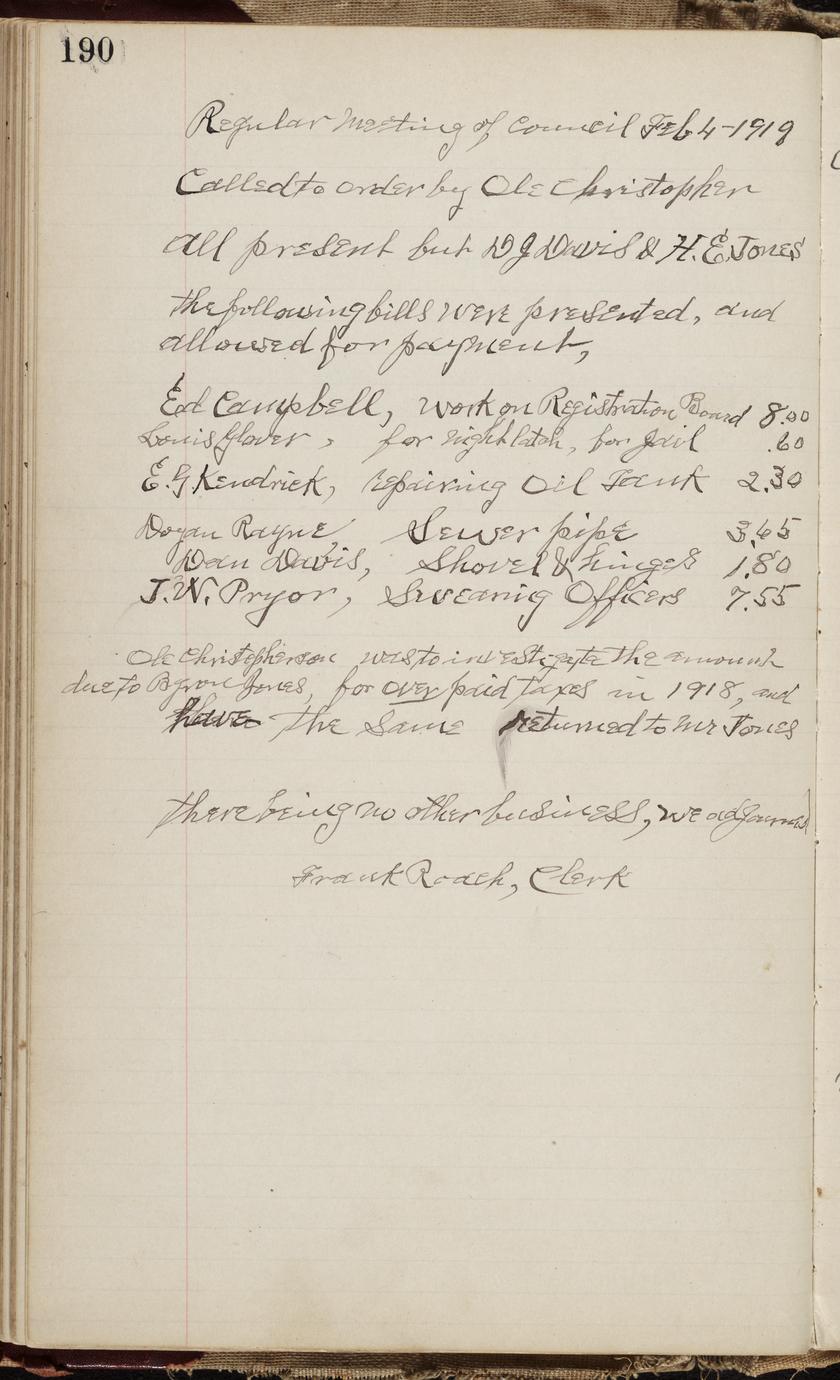 190
Regular Meeting of Council Feb 4-1919
Called to order by Ole Christopher
all present but D J Davis & H. E. Jones
the following bills were presented, and
allowed for payment,
Ed Campbell, work on Registration Board 8.00
Louis Glover, for night latch, for Jail .60
E. G Kendrick, repairing Oil Tank 2.30
Dogan Rayne, Sewer pipe 3.65
Dean Davis, Shovel & hinges 1.80
J. W. Pryor, Swearing Officers 7.55
Ole Christopherson was to investigate the amount
due to Byron Jones, for over paid taxes in 1918, and
have the Same returned to Mr Jones
there being no other business, we adjourned
Frank Roach, Clerk